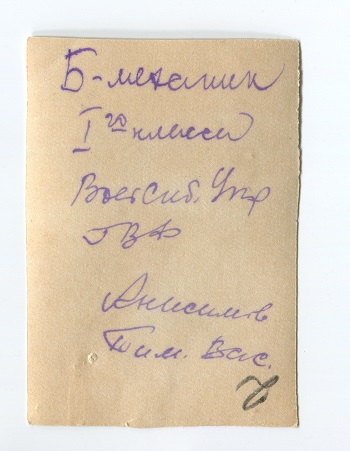 Б-механик
I го класса
ВостСиб. Упр
ГВФ
Анисимов
Тим. Вас.